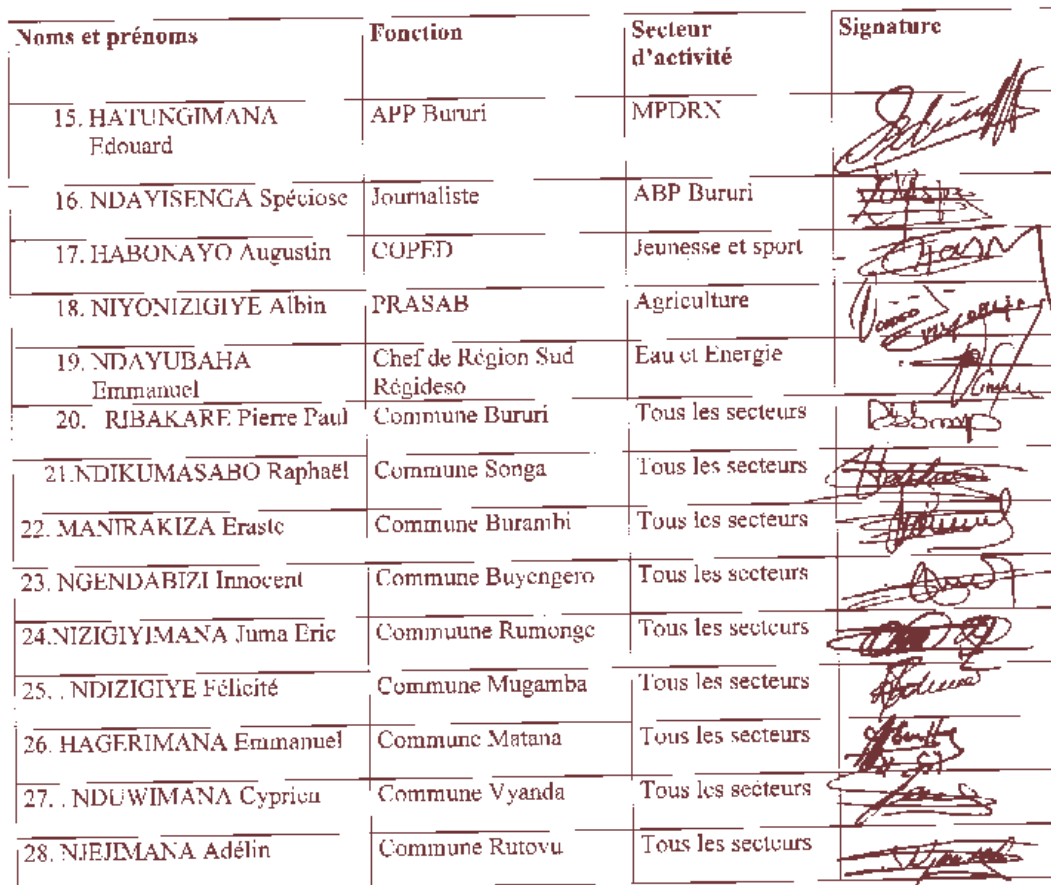 Noms et prénoms Fonction Secteur Signature
d'activité
15. HATUNGIMANA APP Bururi MPDRN
Edouard
16. NDAYISENGA Spéciose Journaliste ABP Bururi
17. HABONAYO Augustin COPED Jeunesse et sport
18. NIYONIZIGIYE Albin PRASAB Agriculture
19. NDAYUBAHA Chef de Région Sud Eau et Energie
Emmanuel Régideso
20. RIBAKARE Pierre Paul Commune Bururi Tous les secteurs
21.NDIKUMASABO Raphaël Commune Songa Tous les secteurs
22. MANIRAKIZA Eraste Commune Burambi Tous les secteurs
23. NGENDABIZI Innocent Commune Buyengero Tous les secteurs
24.NIZIGIYIMANA Juma Eric Commune Rumonge Tous les secteurs
25. . NDIZIGIYE Félicité Commune Mugamba Tous les secteurs
26. HAGERIMANA Emmanuel Commune Matana Tous les secteurs
27. . NDUWIMANA Cyprien Commune Vyanda Tous les secteurs
28. NJEJIMANA Adélin Commune Rutovu Tous les secteurs